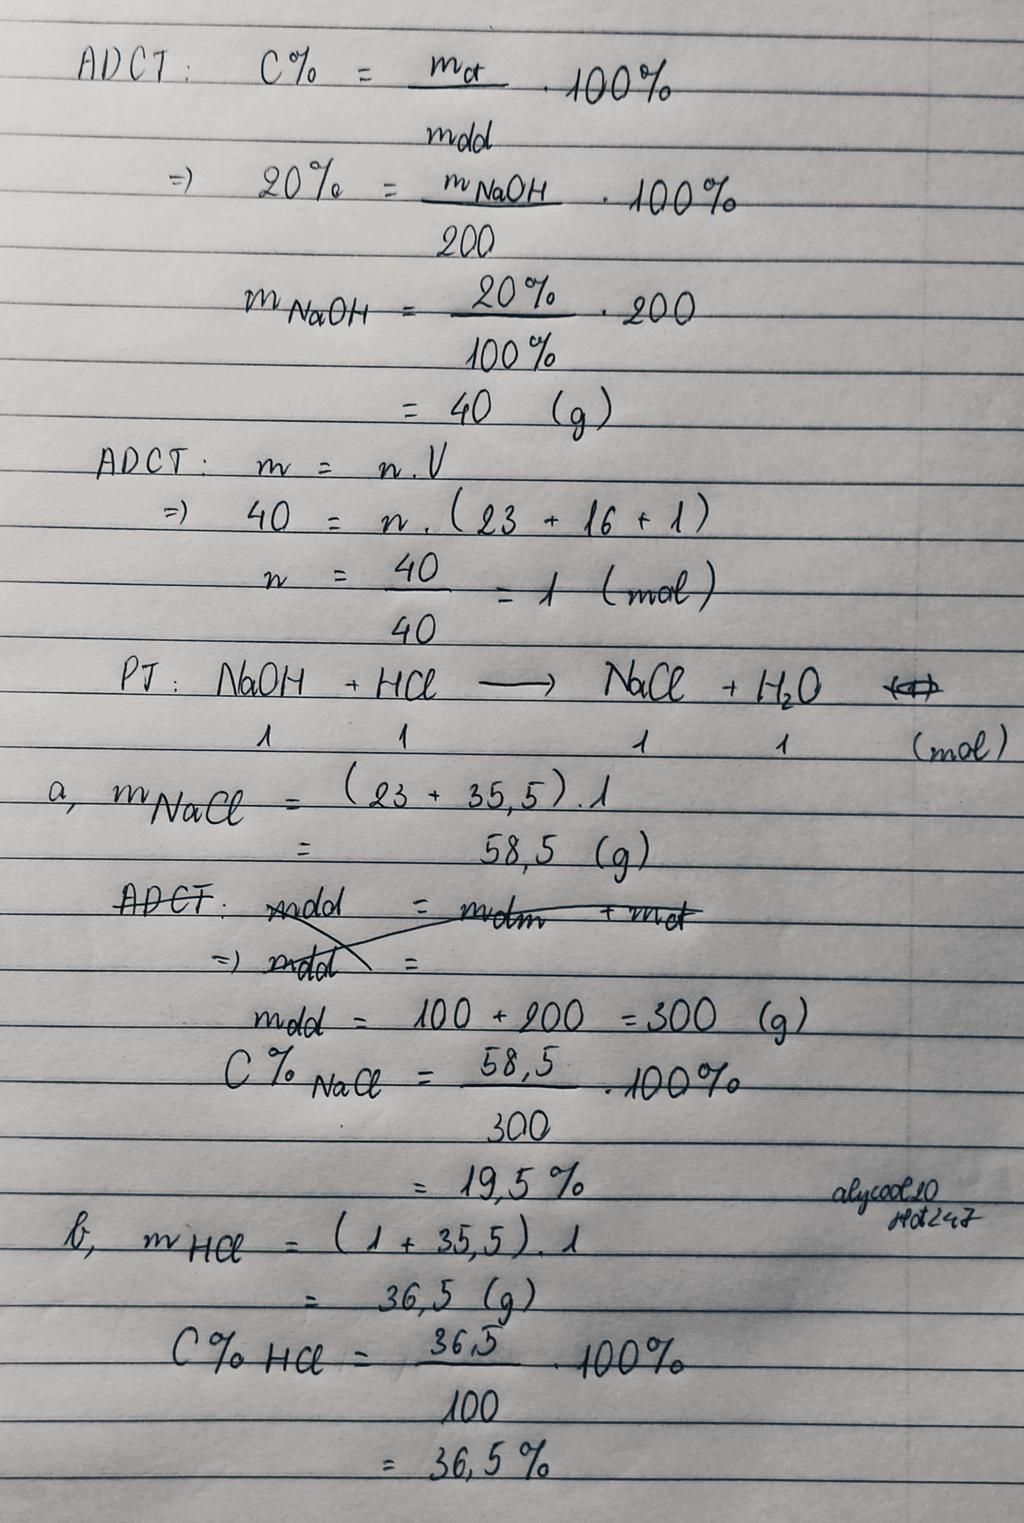 ADCT: C% = mct / mdd . 100%
=) 20% = mNaOH / 200 . 100%
mNaOH = 20% / 100% . 200
= 40 (g)
ADCT: m = n.V
=) 40 = n.(23 + 16 + 1)
n = 40 / 40 = 1 (mol)
PT: NaOH + HCl ⟶ NaCl + H₂O
1 1 1 1 (mol)
a, mNaCl = (23 + 35,5).1
= 58,5 (g)
ADCT: mdd = mdm + mct
=) mdd =
mdd = 100 + 200 = 300 (g)
C% NaCl = 58,5 / 300 . 100%
= 19,5 %
b, mHCl = (1 + 35,5).1
= 36,5 (g)
C% HCl = 36,5 / 100 . 100%
= 36,5 %